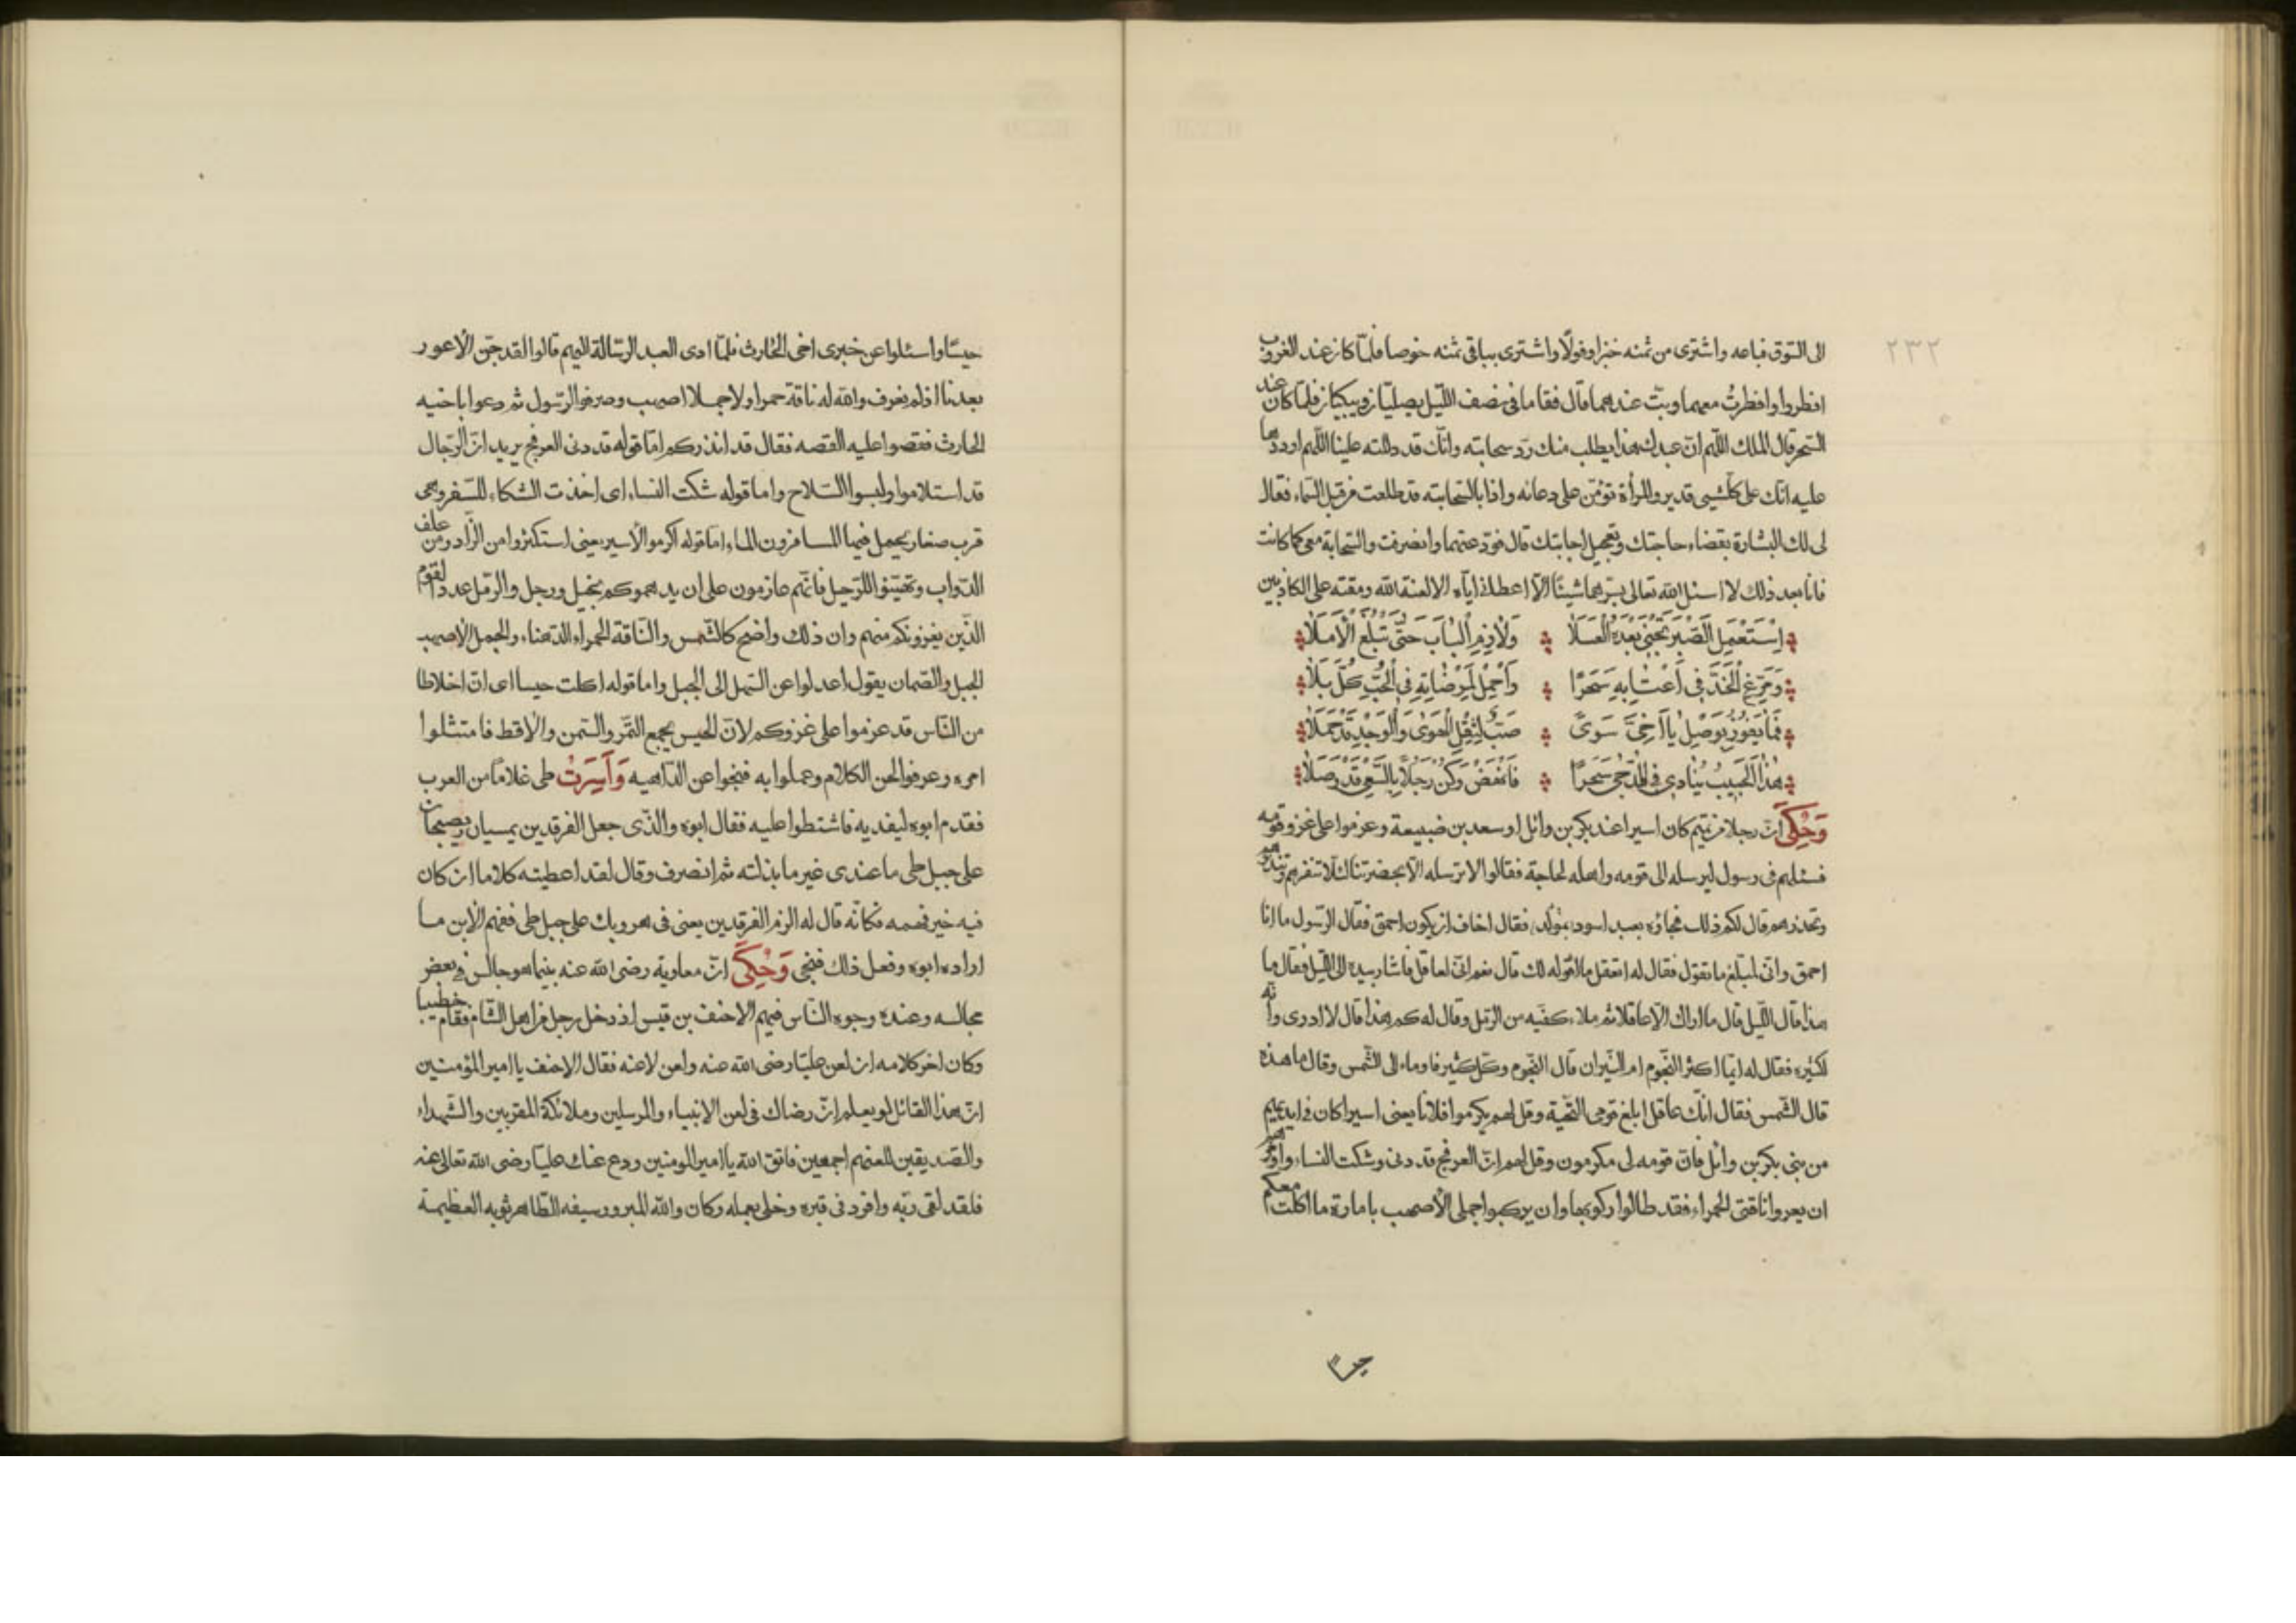 ٢٣٢
الى السّوق فباعه واشترى من ثمنه خبزا وفولًا واشترى بباقى ثمنه خوصا فلمّا كان عند الغروب
افطروا وافطرتُ معهما وبتّ عندهما قال فقاما فى نصف اللّيل يصليّان ويبكيان فلمّا كان عند
السّحر قال الملك اللّهم انّ عبدك هذا يطلب منك ردّ سحابته وانّك قد دللته علينا اللّهم ارددها
عليه انّك على كلّ شيى قدير والمرأة تؤمّن على دعائه واذا بالسّحابته قد طلعت من قبل السّماء فقال
لى لك البشارة بقضاء حاجتك وتعجيل اجابتك قال فودّعتهما وانصرفت والسّحابة معى كما كانت
فانا بعد ذلك لا اسئل الله تعالى بسرّهما شيئًا الّا اعطانى ايّاه الا لعنة الله ومقته على الكاذبين
اِسْتَعْمِلِ الصَّبْرَ تَجْنِى بَعْدَهُ الْعَسَلَا وَلَازِمِ الْبَابَ حَتّٰى تَبْلُغَ الْاَمَلَا
وَمَرِّغِ الْخَدَّ فِى اَعْتَابِهِ سَحَرًا وَاَحْمِلْ لِمَرْضَاتِهِ فِى الْحُبِّ كُلَّ بَلَا
فَمَا يَفُوزُ بِوَصْلٍ يَا اَخِىَّ سَوَىٰ صَبٍّ لِثِقْلِ الْهَوٰى وَالْوَجْدِ قَدْ حَمَلَا
هٰذَا الْحَبِيبُ يُنَادِى فِى الدُّجٰى سَحَرًا فَانْهَضْ وَكُنْ رَجُلًا بِالسَّعْىِ قَدْ وَصَلَا
وَحُكِىَ انّ رجلا من تميم كان اسيرا عند بكر بن وائل او سعد بن ضبيعة وعزموا على غزو قومه
فسئلهم فى رسول ليرسله الى قومه واهله لحاجة فقالوا لا ترسله الّا بحضرتنا لئلّا تنفرهم وتنذرهم
وتحذرهم قال لكم ذلك فجاؤه بعبد اسود بمولّد فقال اخاف ان يكون احمق فقال الرّسول ما انا
احمق وانّى لمبلّغ ما تقول فقال له اتعقل ما اقوله لك قال نعم انّى لعاقل فاشار بيده الى اللّيل فقال ما
هذا قال اللّيل قال ما اراك الّا عاقلا ثم ملاء كفّيه من الرّمل وقال له كم هذا قال لا ادرى وانّه
لكثير فقال له ايّما اكثر النّجوم ام النّيران قال النّجوم وكلّ كثير فاوماء الى الشّمس وقال ما هذه
قال الشّمس فقال انّك عاقل ابلغ قومى التّحيّة وقل لهم يكرموا فلانا يعنى اسيرا كان فى ايديهم
من بنى بكر بن وائل فانّ قومه لى مكرمون وقل لهم انّ العرفج قد دنى وشكت النساء وامرهم
ان يعروا ناقتى الحمراء فقد طالوا ركوبها وان يركبوا جملى الأصهب بامارة ما اكلت معكم
حيسًا
حيسًا واسئلوا عن خبرى اخى الحارث فلمّا ادى العبد الرّسالة اليهم قالوا لقد جنّ الأعور
بعدنا اذ لم يعرف والله له ناقة حمراء ولا جملا اصهب وصرفوا الرّسول ثم دعوا باخيه
الحارث فقصوا عليه القصه فقال قد انذركم امّا قوله قد دنى العرفج يريد انّ الرّجال
قد استلاموا ولبسوا السّلاح واما قوله شكت النساء اى اخذت الشكاء للسّفر وهى
قرب صغار يحمل فيها المسافرون الماء امّا قوله اكرموا الأسير يعنى استكثروا من الزّاد ومن علف
الدّواب وتحيّنوا للرّحيل فانّهم عازمون على ان يدهموكم بخيل ورجل والرّمل عدد القوم
الذّين يغزونكم منهم وان ذلك واضح كالشّمس والنّاقة الحمراء الدّهناء والجمل الأصهب
الجبل والصّمان يقول اعدلوا عن السّهل الى الجبل واما قوله اكلت حيسا اى انّ اخلاطا
من النّاس قد عزموا على غزوكم لانّ الحيس يجمع التّمر والسّمن والأقط فامتثلوا
امره وعرفوا لحن الكلام وعملوا به فنجوا عن الدّاهيه وَأَسِرَتْ طى غلامًا من العرب
فقدم ابوه ليفديه فاشتطوا عليه فقال ابوه والذّى جعل الفرقدين يمسيان ويصبحان
على جبل طى ما عندى غير ما بذلته ثم انصرف وقال لقد اعطيته كلاما ان كان
فيه خير فهمه فكانّه قال له الزم الفرقدين يعنى فى هروبك على جبل طى ففهم الأبن ما
اراده ابوه وفعل ذلك فنجى وَحُكِىَ انّ معاوية رضى الله عنه بينما هو جالس فى بعض
مجالسه وعنده وجوه النّاس فيهم الاحنف بن قيس اذ دخل رجل من اهل الشّام فقام خطيبا
وكان اخر كلامه ان لعن عليّا رضى الله عنه ولعن لاعنه فقال الاحنف يا امير المؤمنين
انّ هذا القائل لو يعلم انّ رضاك فى لعن الانبياء والمرسلين وملائكة المقرّبين والشّهداء
والصّديقين للعنهم اجمعين فاتق الله يا امير المومنين ودع عنك عليّا رضى الله تعالى عنه
فلقد لقى ربّه وافرد فى قبره وخلى بعمله وكان والله المبرور سيفه الطّاهر ثوبه العظيمة